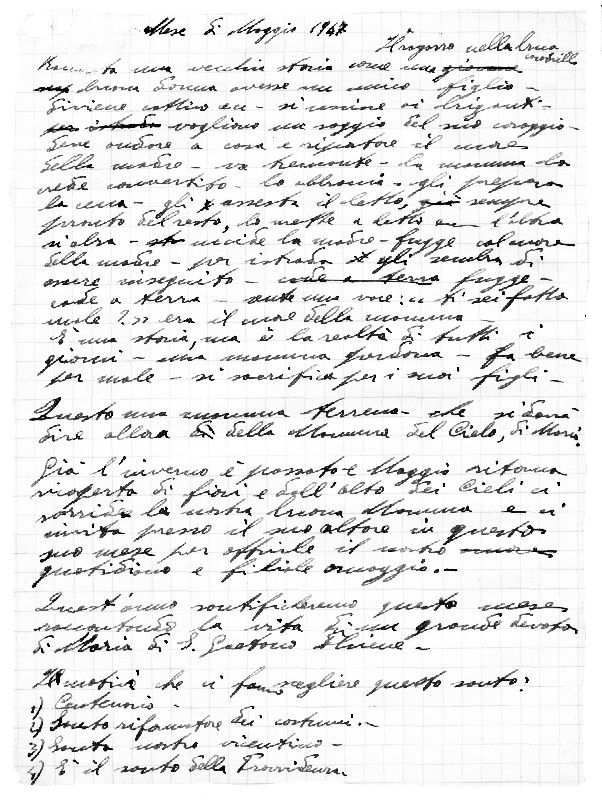 Mese di Maggio 1947
Il ragazzo nella
Racconta una vecchia storia come una giovane
buona donna avesse un unico figlio -
diviene cattivo - si unisce ai briganti -
vogliono un saggio del suo coraggio -
deve andare a casa e riportare il cuore
della madre - va tremante - la mamma lo
crede convertito - lo abbraccia - gli prepara
la cena - gli assesta il letto, sempre
pronto del resto, lo mette a letto l'altra
si alza - uccide la madre - fugge col cuore
della madre - per istrada gli sembra di
essere inseguito - cade a terra fugge -
cade a terra - sente una voce: « ti sei fatto
male ? » era il cuore della mamma -
È una storia, ma è la realtà di tutti i
giorni - una mamma perdona - fa bene
per male - si sacrifica per i suoi figli -
Questo una mamma terrena - che si dovrà
dire allora di della Mamma del Cielo, di Maria.
Già l'inverno è passato e Maggio ritorna
ricoperto di fiori e dall'alto dei Cieli ci
sorride la nostra buona Mamma e ci
invita presso il suo altare in questo
suo mese per offrirle il nostro
quotidiano e filiale omaggio. -
Quest'anno santificheremo questo mese
raccontando la vita di un grande devoto
di Maria di S. Gaetano Thiene -
I motivi che ci fanno scegliere questo santo:
1) Centenario -
2) Santo riformatore dei costumi. -
3) Santo nostro vicentino -
4) È il santo della Provvidenza.